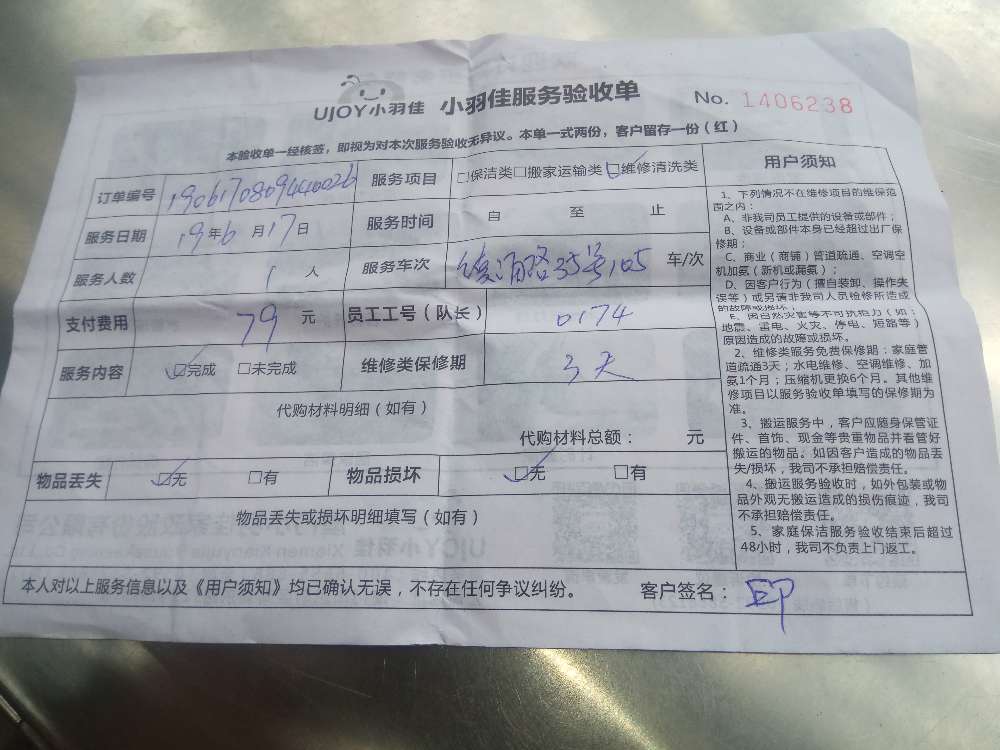 UJOY小羽佳 小羽佳服务验收单 No. 1406238
本验收单一经核签，即视为对本次服务验收无异议。本单一式两份，客户留存一份（红）
订单编号 1906170809440026 服务项目 □保洁类□搬家运输类☑维修清洗类
服务日期 19年6月17日 服务时间 自 至 止
服务人数 1 人 服务车次 路35号105 车/次
支付费用 79 元 员工工号（队长） 0174
服务内容 ☑完成 □未完成 维修类保修期 3天
代购材料明细（如有）
代购材料总额： 元
物品丢失 ☑无 □有 物品损坏 ☑无 □有
物品丢失或损坏明细填写（如有）
本人对以上服务信息以及《用户须知》均已确认无误，不存在任何争议纠纷。 客户签名：
用户须知
1、下列情况不在维修项目的维保范
围之内：
A、非我司员工提供的设备或部件；
B、设备或部件本身已经超过出厂保
修期；
C、商业（商铺）管道疏通、空调空
机加氨（新机或漏氨）；
D、因客户行为（擅自装卸、操作失
误等）或另请非我司人员检修所造成
的故障或损坏；
E、因自然灾害等不可抗拒力（如：
地震、雷电、火灾、停电、短路等）
原因造成的故障或损坏。
2、维修类服务免费保修期：家庭管
道疏通3天；水电维修、空调维修、加
氨1个月；压缩机更换6个月。其他维
修项目以服务验收单填写的保修期为
准。
3、搬运服务中，客户应随身保管证
件、首饰、现金等贵重物品并看管好
搬运的物品。如因客户造成的物品丢
失/损坏，我司不承担赔偿责任。
4、搬运服务验收时，如外包装或物
品外观无搬运造成的损伤痕迹，我司
不承担赔偿责任。
5、家庭保洁服务验收结束后超过
48小时，我司不负责上门返工。